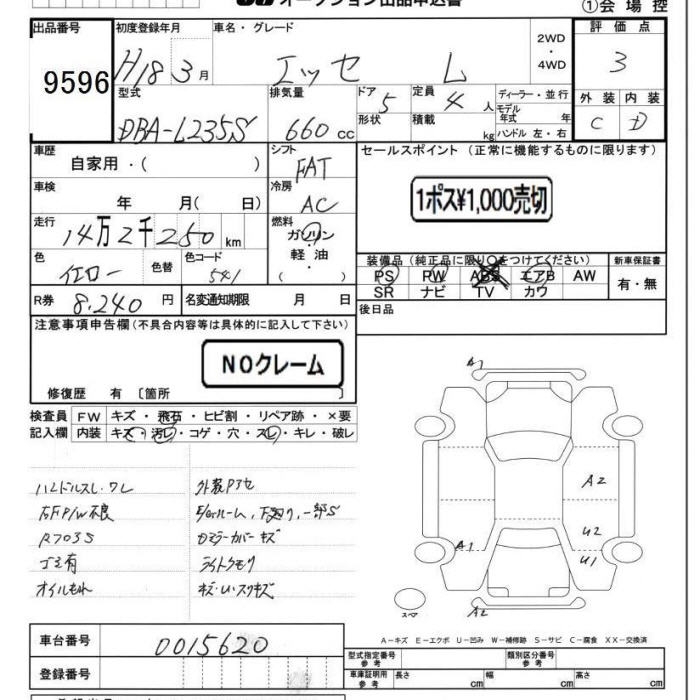 オークション出品申込書
①会場控
出品番号 初度登録年月 車名・グレード 2WD・4WD 評価点
9596 H18 3月 エッセ L 3
型式 排気量 ドア 5 定員 4人 ディーラー・並行 外装 内装
DBA-L235S 660cc 形状 積載 kg モデル年式 年 ハンドル 左・右 C D
車歴 シフト セールスポイント (正常に機能するものに限ります)
自家用・( ) FAT
車検 冷房 1ポス¥1,000売切
年 月( 日) AC
走行 燃料
14万2千250km ガソリン・軽油・
色 色替 色コード 装備品(純正品に限り○をつけてください) 新車保証書
イエロー 541 PS PW ABS エアB AW 有・無
R券 8,240円 名変通知期限 月 日 SR ナビ TV カワ
注意事項申告欄(不具合内容等は具体的に記入して下さい) 後日品
NOクレーム
修復歴 有 〔箇所 〕
検査員 FW キズ・飛石・ヒビ割・リペア跡・×要
記入欄 内装 キズ・汚レ・コゲ・穴・スレ・キレ・破レ
ハンドルスレ・ワレ 外装Pアセ
右F P/W不良 E/Gルーム、下廻り、一部S
R703S カミラーカバーキズ
ゴミ有 ライトクモリ
オイルもれ キズ・U・スリキズ
A1
A2
A1
U2
U1
スペア
A2
A-キズ E-エクボ U-凹み W-補修跡 S-サビ C-腐食 XX-交換済
車台番号 0015620
型式指定番号 参考 類別区分番号 参考
登録番号 車庫証明用 参考 長さ cm 幅 cm 高さ cm